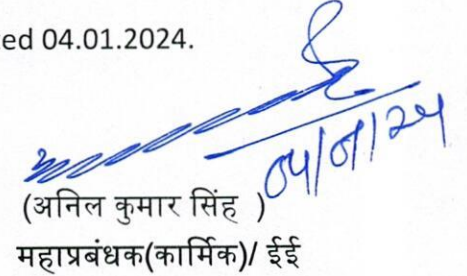 ed 04.01.2024.
04/01/24
(अनिल कुमार सिंह )
महाप्रबंधक(कार्मिक)/ ईई